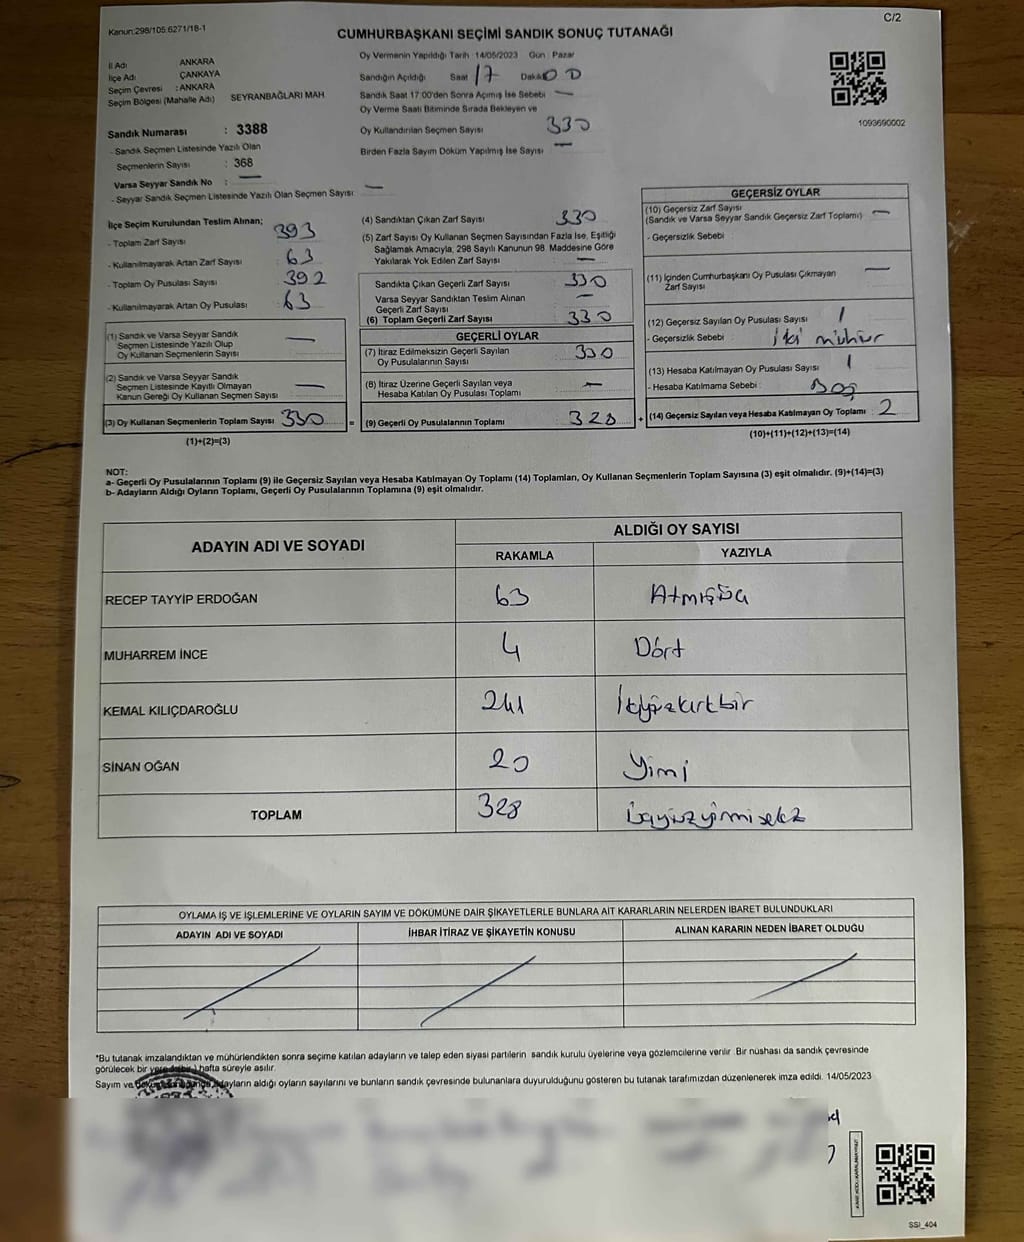 C/2
Kanun:298/105:6271/18-1
CUMHURBAŞKANI SEÇİMİ SANDIK SONUÇ TUTANAĞI
İl Adı ANKARA
İlçe Adı ÇANKAYA
Seçim Çevresi : ANKARA
Seçim Bölgesi (Mahalle Adı) SEYRANBAĞLARI MAH
Sandık Numarası : 3388
- Sandık Seçmen Listesinde Yazılı Olan
Seçmenlerin Sayısı : 368
Varsa Seyyar Sandık No : —
- Seyyar Sandık Seçmen Listesinde Yazılı Olan Seçmen Sayısı: —
Oy Vermenin Yapıldığı Tarih : 14/05/2023 Gün : Pazar
Sandığın Açıldığı Saat 17 Dakika 00
Sandık Saat 17:00'den Sonra Açılmış İse Sebebi —
Oy Verme Saati Bitiminde Sırada Bekleyen ve
Oy Kullandırılan Seçmen Sayısı 330
Birden Fazla Sayım Döküm Yapılmış İse Sayısı —
1093690002
İlçe Seçim Kurulundan Teslim Alınan;
- Toplam Zarf Sayısı 393
- Kullanılmayarak Artan Zarf Sayısı 63
- Toplam Oy Pusulası Sayısı 392
- Kullanılmayarak Artan Oy Pusulası 63
(1) Sandık ve Varsa Seyyar Sandık
Seçmen Listesinde Yazılı Olup
Oy Kullanan Seçmenlerin Sayısı —
(2) Sandık ve Varsa Seyyar Sandık
Seçmen Listesinde Kayıtlı Olmayan
Kanun Gereği Oy Kullanan Seçmen Sayısı —
(3) Oy Kullanan Seçmenlerin Toplam Sayısı 330 =
(1)+(2)=(3)
(4) Sandıktan Çıkan Zarf Sayısı 330
(5) Zarf Sayısı Oy Kullanan Seçmen Sayısından Fazla İse, Eşitliği
Sağlamak Amacıyla, 298 Sayılı Kanunun 98. Maddesine Göre
Yakılarak Yok Edilen Zarf Sayısı —
Sandıkta Çıkan Geçerli Zarf Sayısı 330
Varsa Seyyar Sandıktan Teslim Alınan
Geçerli Zarf Sayısı —
(6) Toplam Geçerli Zarf Sayısı 330
GEÇERLİ OYLAR
(7) İtiraz Edilmeksizin Geçerli Sayılan
Oy Pusulalarının Sayısı 330
(8) İtiraz Üzerine Geçerli Sayılan veya
Hesaba Katılan Oy Pusulası Toplamı —
(9) Geçerli Oy Pusulalarının Toplamı 328 +
GEÇERSİZ OYLAR
(10) Geçersiz Zarf Sayısı —
(Sandık ve Varsa Seyyar Sandık Geçersiz Zarf Toplamı)
- Geçersizlik Sebebi :
(11) İçinden Cumhurbaşkanı Oy Pusulası Çıkmayan —
Zarf Sayısı
(12) Geçersiz Sayılan Oy Pusulası Sayısı 1
- Geçersizlik Sebebi : iki mühür
(13) Hesaba Katılmayan Oy Pusulası Sayısı 1
- Hesaba Katılmama Sebebi : Boş
(14) Geçersiz Sayılan veya Hesaba Katılmayan Oy Toplamı : 2
(10)+(11)+(12)+(13)=(14)
NOT:
a- Geçerli Oy Pusulalarının Toplamı (9) ile Geçersiz Sayılan veya Hesaba Katılmayan Oy Toplamı (14) Toplamları, Oy Kullanan Seçmenlerin Toplam Sayısına (3) eşit olmalıdır. (9)+(14)=(3)
b- Adayların Aldığı Oyların Toplamı, Geçerli Oy Pusulalarının Toplamına (9) eşit olmalıdır.
ADAYIN ADI VE SOYADI ALDIĞI OY SAYISI
RAKAMLA YAZIYLA
RECEP TAYYİP ERDOĞAN 63
MUHARREM İNCE 4 Dört
KEMAL KILIÇDAROĞLU 241 İkiyüzkırkbir
SİNAN OĞAN 20 Yimi
TOPLAM 328
OYLAMA İŞ VE İŞLEMLERİNE VE OYLARIN SAYIM VE DÖKÜMÜNE DAİR ŞİKAYETLERLE BUNLARA AİT KARARLARIN NELERDEN İBARET BULUNDUKLARI
ADAYIN ADI VE SOYADI İHBAR İTİRAZ VE ŞİKAYETİN KONUSU ALINAN KARARIN NEDEN İBARET OLDUĞU
*Bu tutanak imzalandıktan ve mühürlendikten sonra seçime katılan adayların ve talep eden siyasi partilerin sandık kurulu üyelerine veya gözlemcilerine verilir. Bir nüshası da sandık çevresinde
görülecek bir yere bir hafta süreyle asılır.
Sayım ve adayların aldığı oyların sayılarını ve bunların sandık çevresinde bulunanlara duyurulduğunu gösteren bu tutanak tarafımızdan düzenlenerek imza edildi. 14/05/2023
SSI_404